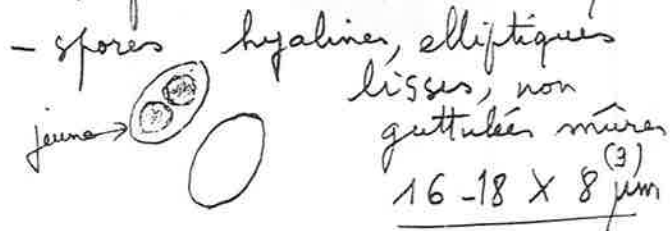 - spores hyalines, elliptiques
lisses, non
jeune guttulées mûres
(3)
16-18 X 8 µm